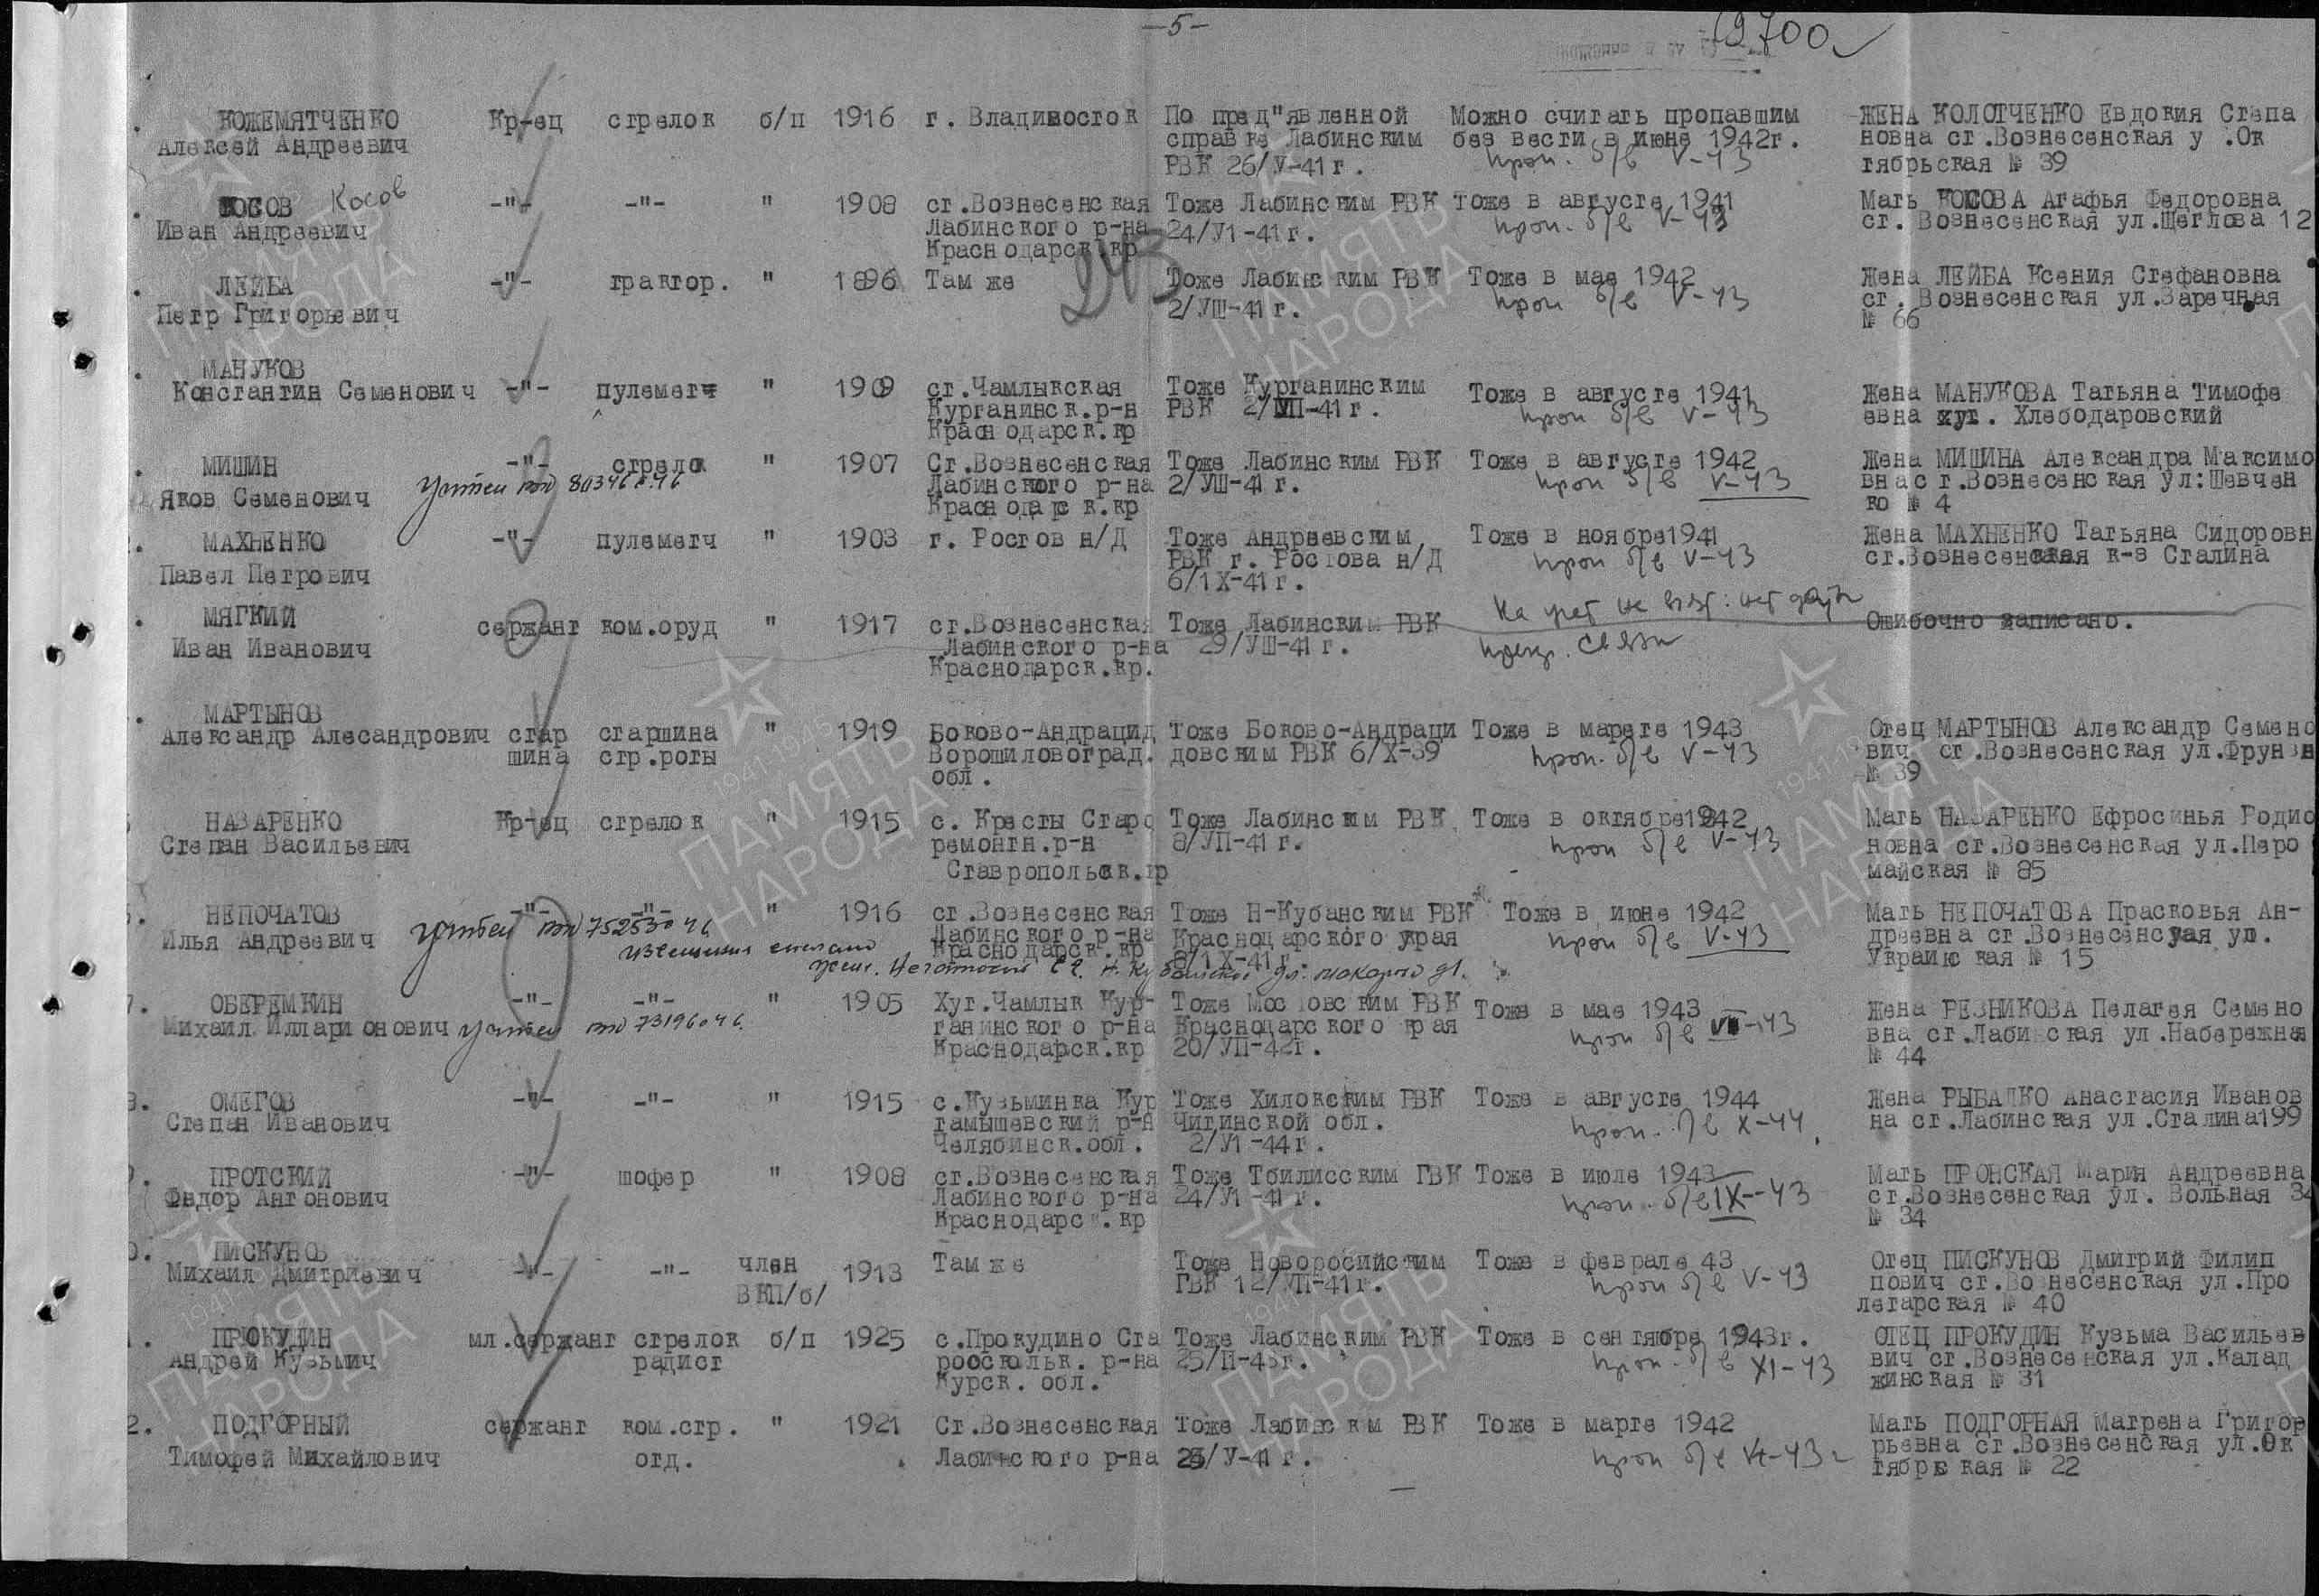 -5-
12700
КОЖЕМЯТЧЕНКО Кр-ец стрелок б/п 1916 г. Владивосток По пред"явленной Можно считать пропавшим ЖЕНА КОЛОТЧЕНКО Евдокия Степа
Алексей Андреевич справке Лабинским без вести в июне 1942г. новна ст.Вознесенская у .Ок
РВК 26/У-41г. проп. б/в V-43 тябрьская № 39
КОСОВ Косов -"- -"- " 1908 ст.Вознесенская Тоже Лабинским РВК Тоже в августе 1941 Мать КОСОВА Агафья Федоровна
Иван Андреевич Лабинского р-на 24/У1-41г. проп. б/в V-43 ст. Вознесенская ул.Щеглова 12
Краснодарск.кр
243
ЛЕЙБА -"- трактор. " 1896 Там же Тоже Лабинским РВК Тоже в мае 1942 Жена ЛЕЙБА Ксения Стефановна
Петр Григорьевич 2/УШ-41г. проп б/в V-43 ст. Вознесенская ул.Заречная
№ 66
МАНУКОВ
Константин Семенович -"- пулеметч " 1909 ст.Чамлыкская Тоже Курганинским Тоже в августе 1941 Жена МАНУКОВА Татьяна Тимофе
Курганинск.р-н РВК 2/УП-41г. проп б/в V-43 евна хут. Хлебодаровский
Краснодарск.кр
МИШИН -"- стрелок " 1907 Ст.Вознесенская Тоже Лабинским РВК Тоже в августе 1942 Жена МИШИНА Александра Максимо
Яков Семенович Учтен 80346 с.46 Лабинского р-на 2/УШ-41г. проп б/в V-43 вна ст.Вознесенская ул:Шевчен
Краснодарск.кр ко № 4
МАХНЕНКО -"- пулеметч " 1903 г. Ростов н/Д Тоже Андреевским Тоже в ноябре1941 Жена МАХНЕНКО Татьяна Сидоровн
Павел Петрович РВК г. Ростова н/Д проп б/в V-43 ст.Вознесенская к-з Сталина
6/1Х-41г.
МЯГКИЙ сержант ком.оруд " 1917 ст.Вознесенская Тоже Лабинским РВК На учет не взят: нет даты Ошибочно записано.
Иван Иванович Лабинского р-на 29/УШ-41г. прекр. связи
Краснодарск.кр.
МАРТЫНОВ
Александр Алесандрович стар старшина " 1919 Боково-Андрацид Тоже Боково-Андраци Тоже в мареге 1943 Отец МАРТЫНОВ Александр Семено
шина стр.роты Ворошиловоград. довским РВК 6/Х-39 проп. б/в V-43 вич ст.Вознесенская ул.Фрунзе
обл. № 39
НАЗАРЕНКО Кр-ец стрелок " 1915 с. Кресты Старо Тоже Лабинским РВК Тоже в октябре1942 Мать НАЗАРЕНКО Ефросинья Родио
Степан Васильевич ремонтн.р-н 8/УП-41г. проп б/в V-43 новна ст.Вознесенская ул.Перо
Ставропольск.кр майская № 85
НЕПОЧАТОВ -"- -"- " 1916 ст.Вознесенская Тоже Н-Кубанским РВК Тоже в июне 1942 Мать НЕПОЧАТОВА Прасковья Ан-
Илья Андреевич Учтен 75253 с 46 Лабинского р-на Краснодарского края проп б/в V-43 дреевна ст.Вознесенская ул.
извещения Краснодарск.кр 8/1Х-41г. Украинская № 15
ОБЕРЕМКИН -"- -"- " 1905 Хут.Чамлык Кур- Тоже Мостовским РВК Тоже в мае 1943 Жена РЕЗНИКОВА Пелагея Семено
Михаил Иллари онович Учтен 73196 с 46. ганинского р-на Краснодарского края проп б/в VII-43 вна ст.Лабинская ул.Набережная
Краснодарск.кр 20/УП-42г. № 44
ОМЕГОВ -"- -"- " 1915 с.Кузьминка Кур Тоже Хилокским РВК Тоже в августе 1944 Жена РЫБАЛКО Анастасия Иванов
Степан Иванович тамышевский р-н Читинской обл. проп. б/в X-44 на ст.Лабинская ул.Сталина199
Челябинск.обл. 2/У1-44г.
ПРОТСКИЙ -"- шофер " 1908 ст.Вознесенская Тоже Тбилисским ГВК Тоже в июле 1943 Мать ПРОНСКАЯ Мария Андреевна
Федор Антонович Лабинского р-на 24/У1-41г. проп. б/в IX-43 ст.Вознесенская ул. Вольная 34
Краснодарск.кр № 34
ПИСКУНОВ член
Михаил Дмитриевич -"- -"- ВКП/б/ 1913 Там же Тоже Новоросийским Тоже в феврале 43 Отец ПИСКУНОВ Дмитрий Филип
ГВК 12/УП-41г. проп б/в V-43 пович ст.Вознесенская ул.Про
летарская № 40
ПРОКУДИН мл.сержант стрелок б/п 1925 с.Прокудино Ста Тоже Лабинским РВК Тоже в сентябре 1943г. ОТЕЦ ПРОКУДИН Кузьма Васильев
Андрей Кузьмич радист рооскольк. р-на 25/П-43г. проп. б/в XI-43 вич ст.Вознесенская ул.Калад
Курск. обл. жинская № 31
ПОДГОРНЫЙ сержант ком.стр. " 1921 Ст.Вознесенская Тоже Лабинским РВК Тоже в марте 1942 Мать ПОДГОРНАЯ Матрена Григор
Тимофей Михайлович отд. Лабинского р-на 23/У-41г. проп б/в VI-43г рьевна ст.Вознесенская ул.Ок
тябрьская № 22
1941-1945
ПАМЯТЬ
НАРОДА